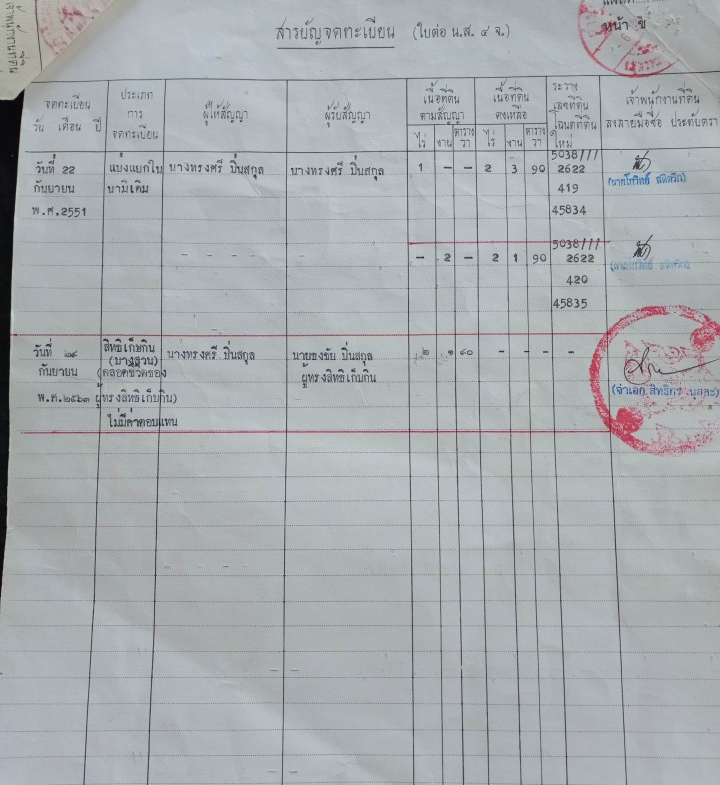 หน้า ข
สารบัญจดทะเบียน (ใบต่อ น.ส. ๔ จ.)
จดทะเบียน
วัน เดือน ปี
ประเภท
การ
จดทะเบียน
ผู้ให้สัญญา
ผู้รับสัญญา
เนื้อที่ดิน
ตามสัญญา
ไร่ งาน ตาราง
วา
เนื้อที่ดิน
คงเหลือ
ไร่ งาน ตาราง
วา
ระวาง
เลขที่ดิน
โฉนดที่ดิน
ใหม่
เจ้าพนักงานที่ดิน
ลงลายมือชื่อ ประทับตรา
วันที่ 22 แบ่งแยกใน นางทรงศรี ปิ่นสกุล นางทรงศรี ปิ่นสกุล 1 - - 2 3 90 5038///
2622
กันยายน นามเดิม 419
พ.ศ.2551 45834
- 2 - 2 1 90 5038///
2622
420
45835
วันที่ ๒๙ สิทธิเก็บกิน นางทรงศรี ปิ่นสกุล นายธงชัย ปิ่นสกุล ๒ ๑ ๙๐ - - - -
(บางส่วน)
กันยายน (ตลอดชีวิตของ ผู้ทรงสิทธิเก็บกิน
พ.ศ.๒๕๖๓ ผู้ทรงสิทธิเก็บกิน)
ไม่มีค่าตอบแทน
(จ่าเอก